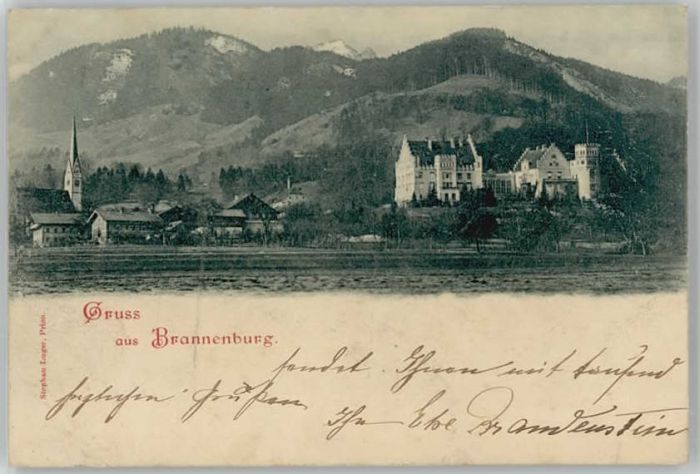 Gruss
aus Brannenburg.
Stephan Luger, Prien.
sendet Ihnen mit tausend
herzlichen Grüßen
Ihr Eke Brandenstein